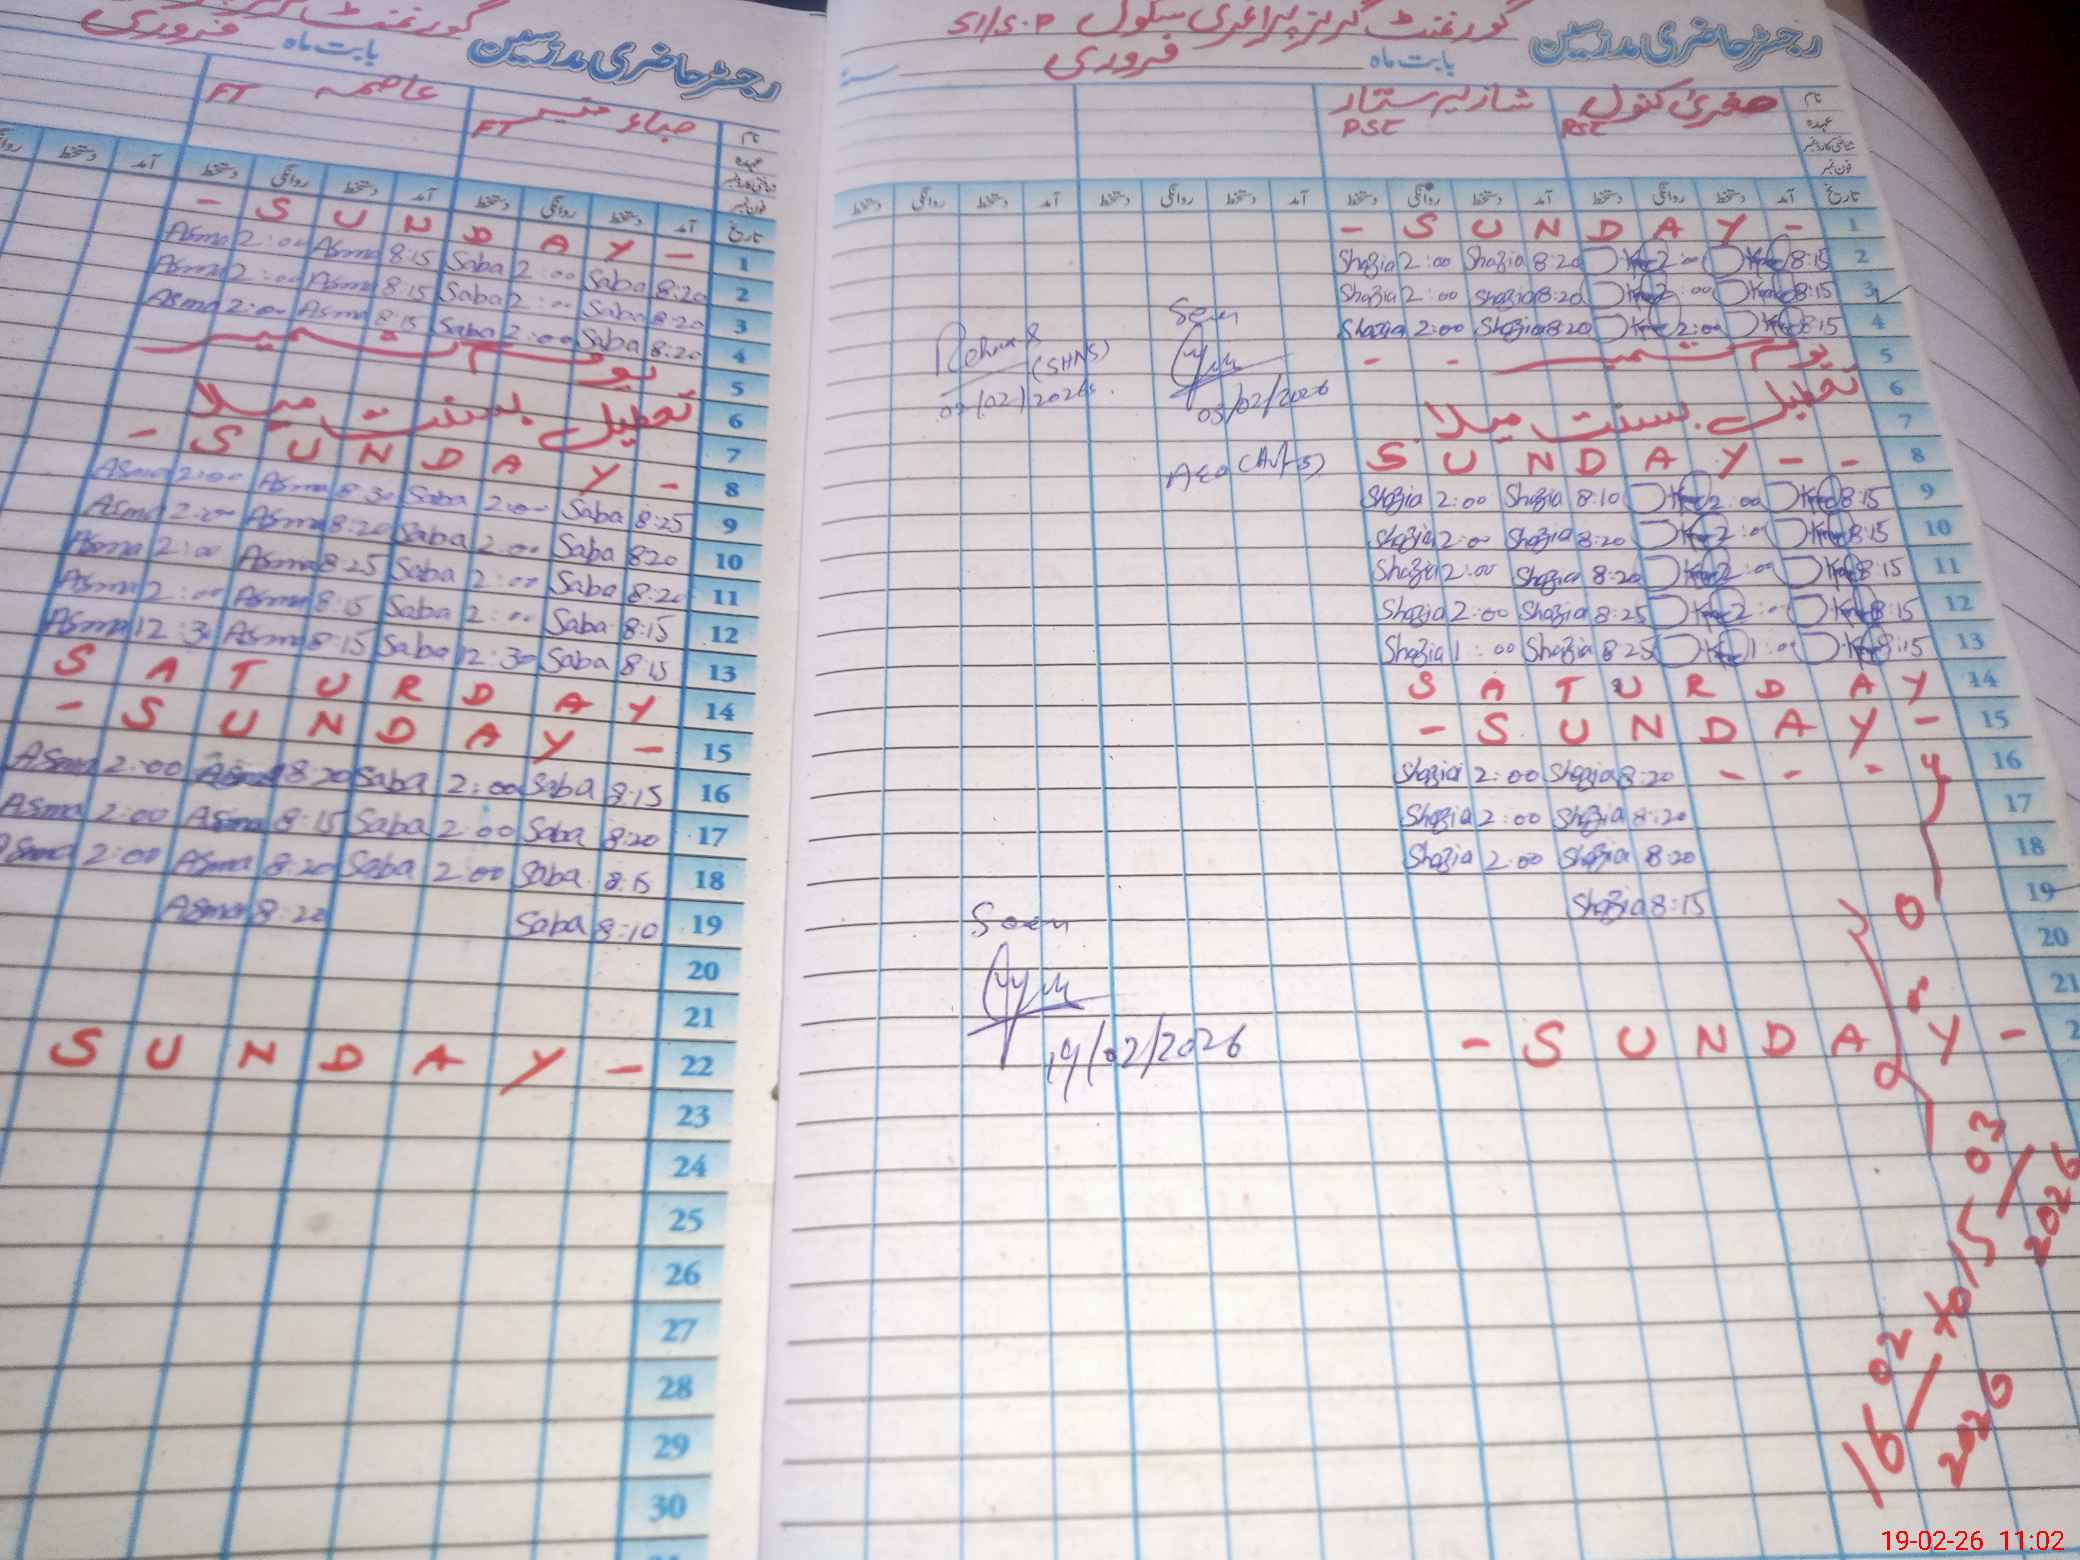 رجسٹر حاضری مدرسین گورنمنٹ گرلز پرائمری سکول 51/S.P
بابت ماہ فروری سنہ
نام صغریٰ کنول شازیہ ستار
عہدہ PST PST
شناختی کارڈ نمبر
فون نمبر
تاریخ آمد دستخط روانگی دستخط آمد دستخط روانگی دستخط آمد دستخط روانگی دستخط آمد دستخط روانگی دستخط
1 - S U N D A Y -
2 8:15 2:00 8:20 Shazia 2:00 Shazia
3 8:15 2:00 8:20 Shazia 2:00 Shazia
4 8:15 2:00 8:20 Shazia 2:00 Shazia
5 یوم کشمیر - -
6 تعطیل بسنت میلا
7
8 S U N D A Y - -
9 8:15 2:00 8:10 Shazia 2:00 Shazia
10 8:15 2:00 8:20 Shazia 2:00 Shazia
11 8:15 2:00 8:20 Shazia 2:00 Shazia
12 8:15 2:00 8:25 Shazia 2:00 Shazia
13 8:15 1:00 8:25 Shazia 1:00 Shazia
14 S A T U R D A Y
15 - S U N D A Y -
16 8:20 Shazia 2:00 Shazia
17 8:20 Shazia 2:00 Shazia
18 8:20 Shazia 2:00 Shazia
19 8:15 Shazia
20
21
- S U N D A Y -
Seen
03/02/2026
(SHNS)
Seen
19/02/2026
16/02/2026 to 15/03/2026
رجسٹر حاضری مدرسین گورنمنٹ
بابت ماہ فروری
نام صباء منیر عاصمہ
عہدہ FT FT
فون نمبر
تاریخ آمد دستخط روانگی دستخط آمد دستخط روانگی دستخط آمد دستخط
1 - S U N D A Y -
2 8:20 Saba 2:00 Saba 8:15 Asma 2:00 Asma
3 8:20 Saba 2:00 Saba 8:15 Asma 2:00 Asma
4 8:20 Saba 2:00 Saba 8:15 Asma 2:00 Asma
5 یوم کشمیر
6 تعطیل بسنت میلا
7
8 - S U N D A Y -
9 8:25 Saba 2:00 Saba 8:30 Asma 2:00 Asma
10 8:20 Saba 2:00 Saba 8:20 Asma 2:00 Asma
11 8:20 Saba 2:00 Saba 8:25 Asma 2:00 Asma
12 8:15 Saba 2:00 Saba 8:15 Asma 2:00 Asma
13 8:15 Saba 12:30 Saba 8:15 Asma 12:30 Asma
14 S A T U R D A Y
15 - S U N D A Y -
16 8:15 Saba 2:00 Saba 8:20 Asma 2:00 Asma
17 8:20 Saba 2:00 Saba 8:15 Asma 2:00 Asma
18 8:15 Saba 2:00 Saba 8:20 Asma 2:00 Asma
19 8:10 Saba 8:20 Asma
20
21
22 S U N D A Y -
23
24
25
26
27
28
29
30
19-02-26 11:02